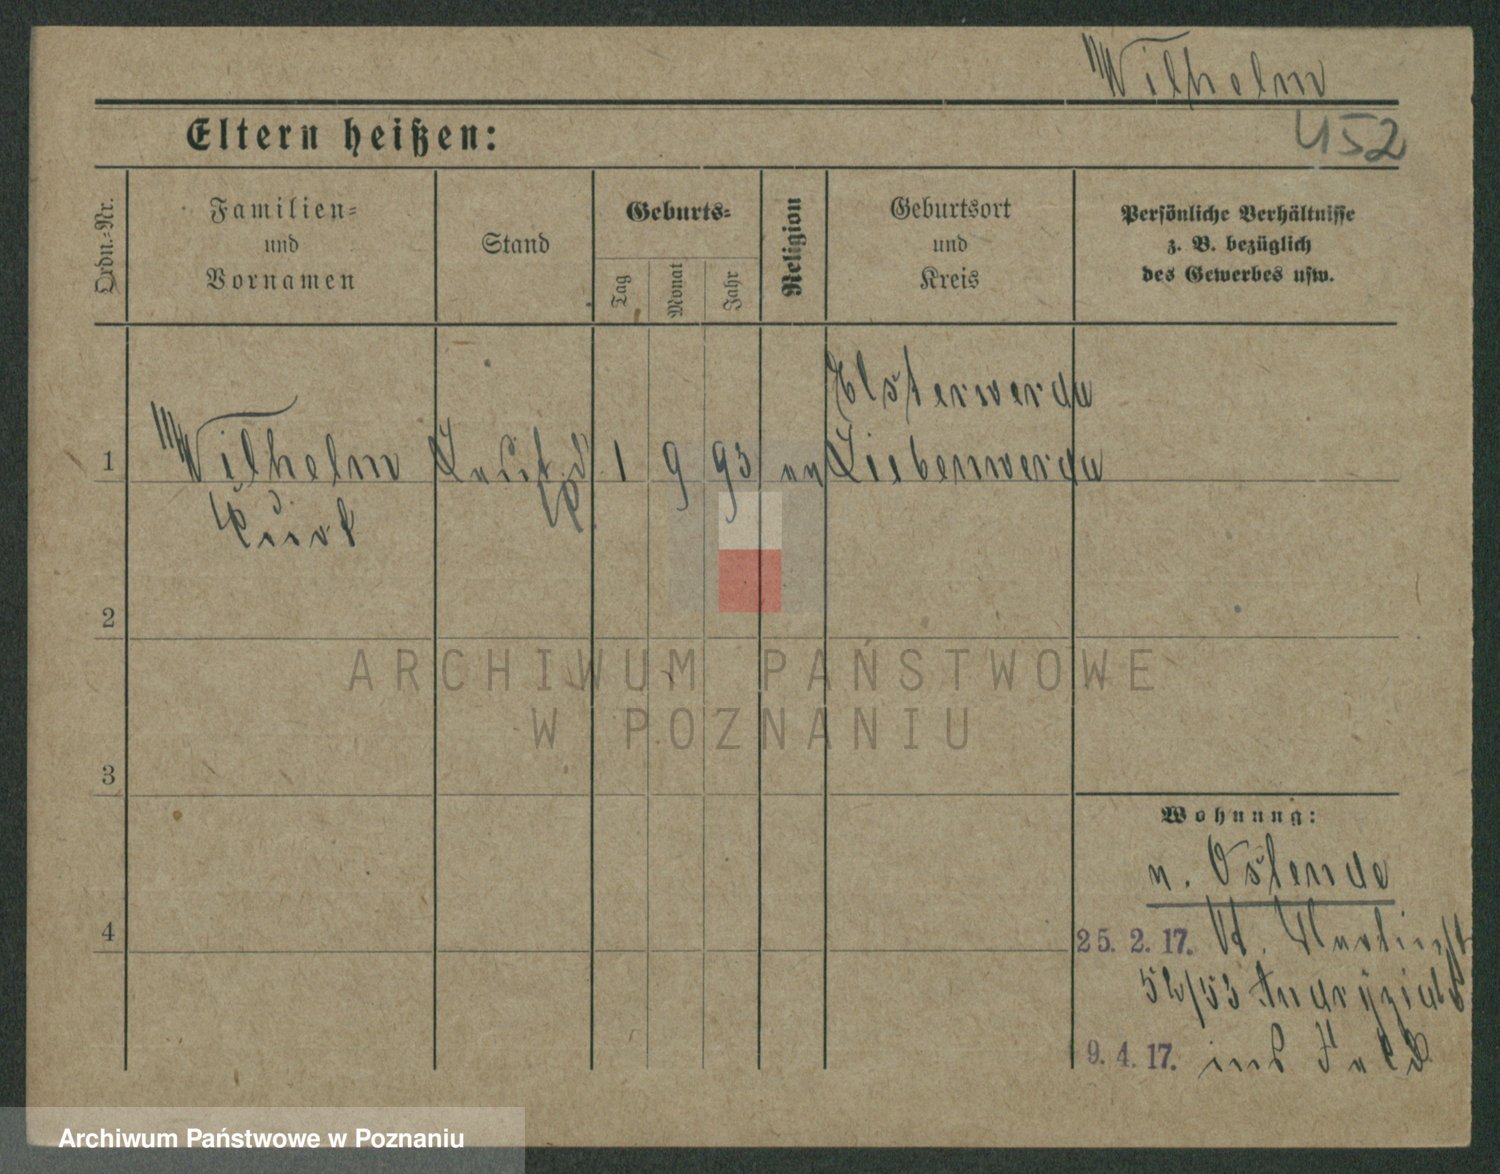 Wilhelm
452
Eltern heißen:
Ordn.-Nr.
Familien-
und
Vornamen
Stand
Geburts-
Tag
Monat
Jahr
Religion
Geburtsort
und
Kreis
Persönliche Verhältnisse
z. B. bezüglich
des Gewerbes usw.
Elsterwerda
1 Wilhelm 1 9 93 Liebenwerda
Kurt
2
3
4
Wohnung:
n. Ostende
25. 2. 17. St.
52/53
9. 4. 17. ins Feld
ARCHIWUM PAŃSTWOWE
W POZNANIU
Archiwum Państwowe w Poznaniu